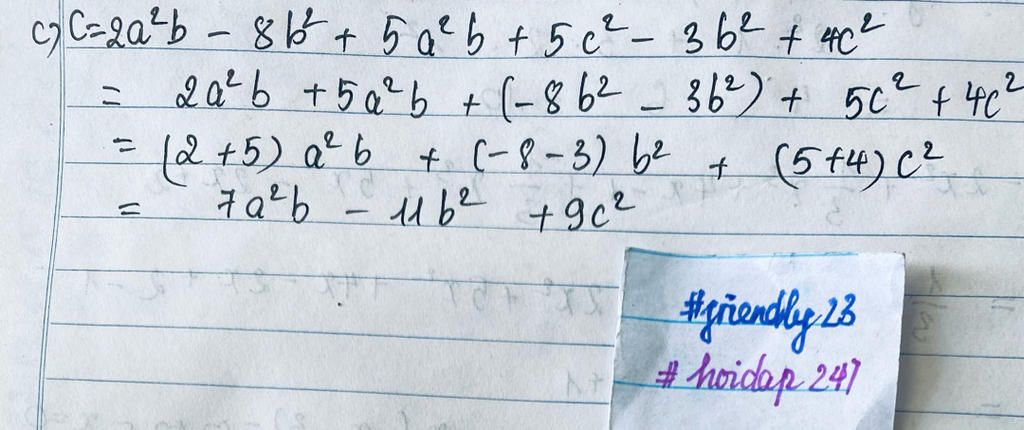 c) C = 2a²b - 8b² + 5a²b + 5c² - 3b² + 4c²
= 2a²b + 5a²b + (-8b² - 3b²) + 5c² + 4c²
= (2 + 5) a²b + (-8 - 3) b² + (5 + 4) c²
= 7a²b - 11b² + 9c²
#friendly23
# hoidap 247